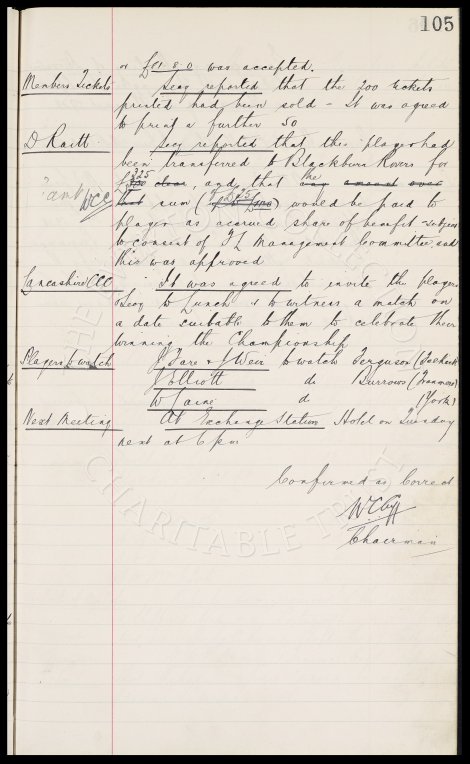 105
of £91. 8. 0 was accepted.
Members Tickets Secy reported that the 200 tickets
printed had been sold - It was agreed
to print a further 50
D Raitt. Secy reported that this player had
been transferred to Blackburn Rovers for
325
£350 and that the any amount over
WCC
that sum (£325) would be paid to
player as accrued share of benefit - subject
to consent of F L Management Committee, and
this was approved
Lancashire CCC It was agreed to invite the players
& Secy to Lunch & to witness a match on
a date suitable to them to celebrate their
winning the Championship
Players to watch J Fare & J Weir to watch Ferguson
J Elliott do Burrows (Tranmere)
W Caine do (York)
Next Meeting At Exchange Station Hotel on Tuesday
next at 6 pm
Confirmed as Correct
W C Cuff
Chairman
CHARITABLE TRUST